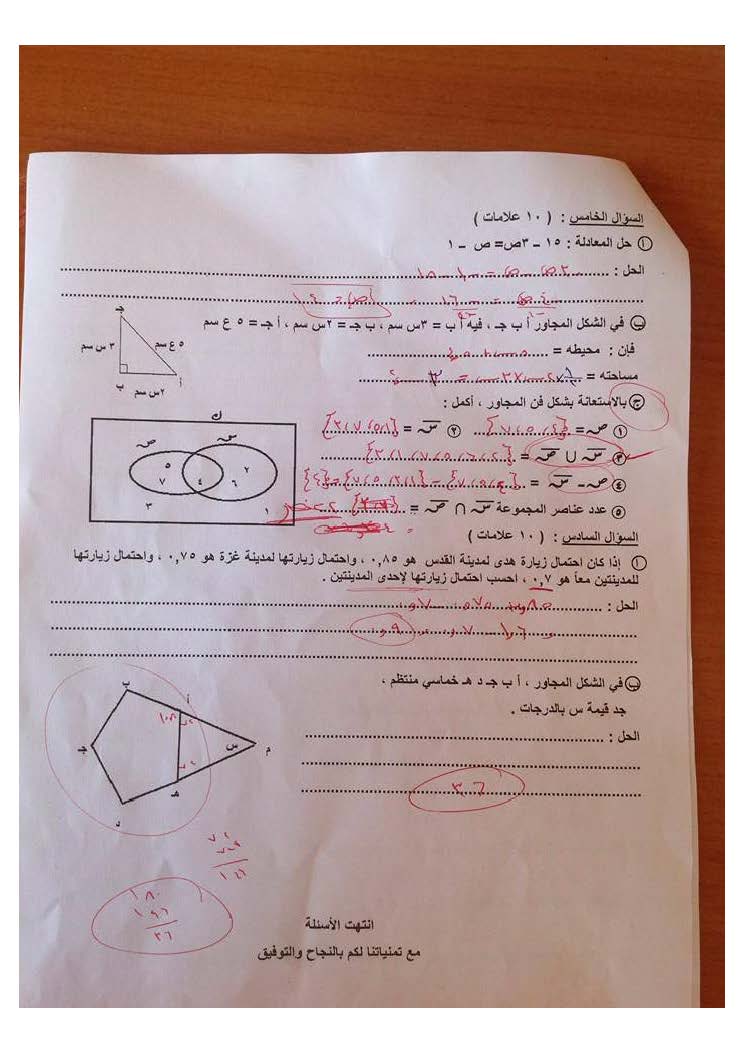 السؤال الخامس : ( ١٠ علامات )
أ حل المعادلة : ١٥ - ٣ص= ص - ١
الحل :
٤ص = ١٦
ب في الشكل المجاور أ ب جـ ، فيه أ ب = ٣س سم ، ب جـ = ٢س سم ، أ جـ = ٥ ع سم
فإن : محيطه =
مساحته =
جـ
٣ س سم
٥ ع سم
ب
٢س سم
أ
ج بالاستعانة بشكل فن المجاور ، أكمل :
١ ص = {٧،٥،٤} ٢ س̅ =
٣ س̅ ∪ ص̅ =
٤ ص - س̅ =
٥ عدد عناصر المجموعة س̅ ∩ ص̅ =
ك
ص
س
٥
٧
٤
٢
٦
٣
١
السؤال السادس : ( ١٠ علامات )
أ إذا كان احتمال زيارة هدى لمدينة القدس هو ٠,٨٥ ، واحتمال زيارتها لمدينة غزة هو ٠,٧٥ ، واحتمال زيارتها
للمدينتين معاً هو ٠,٧ ، احسب احتمال زيارتها لإحدى المدينتين .
الحل :
ب في الشكل المجاور ، أ ب جـ د هـ خماسي منتظم ،
جد قيمة س بالدرجات .
الحل :
٣٦
ب
أ
١٠٨
جـ
س
م
هـ
د
١٨٠
٣٦
انتهت الأسئلة
مع تمنياتنا لكم بالنجاح والتوفيق